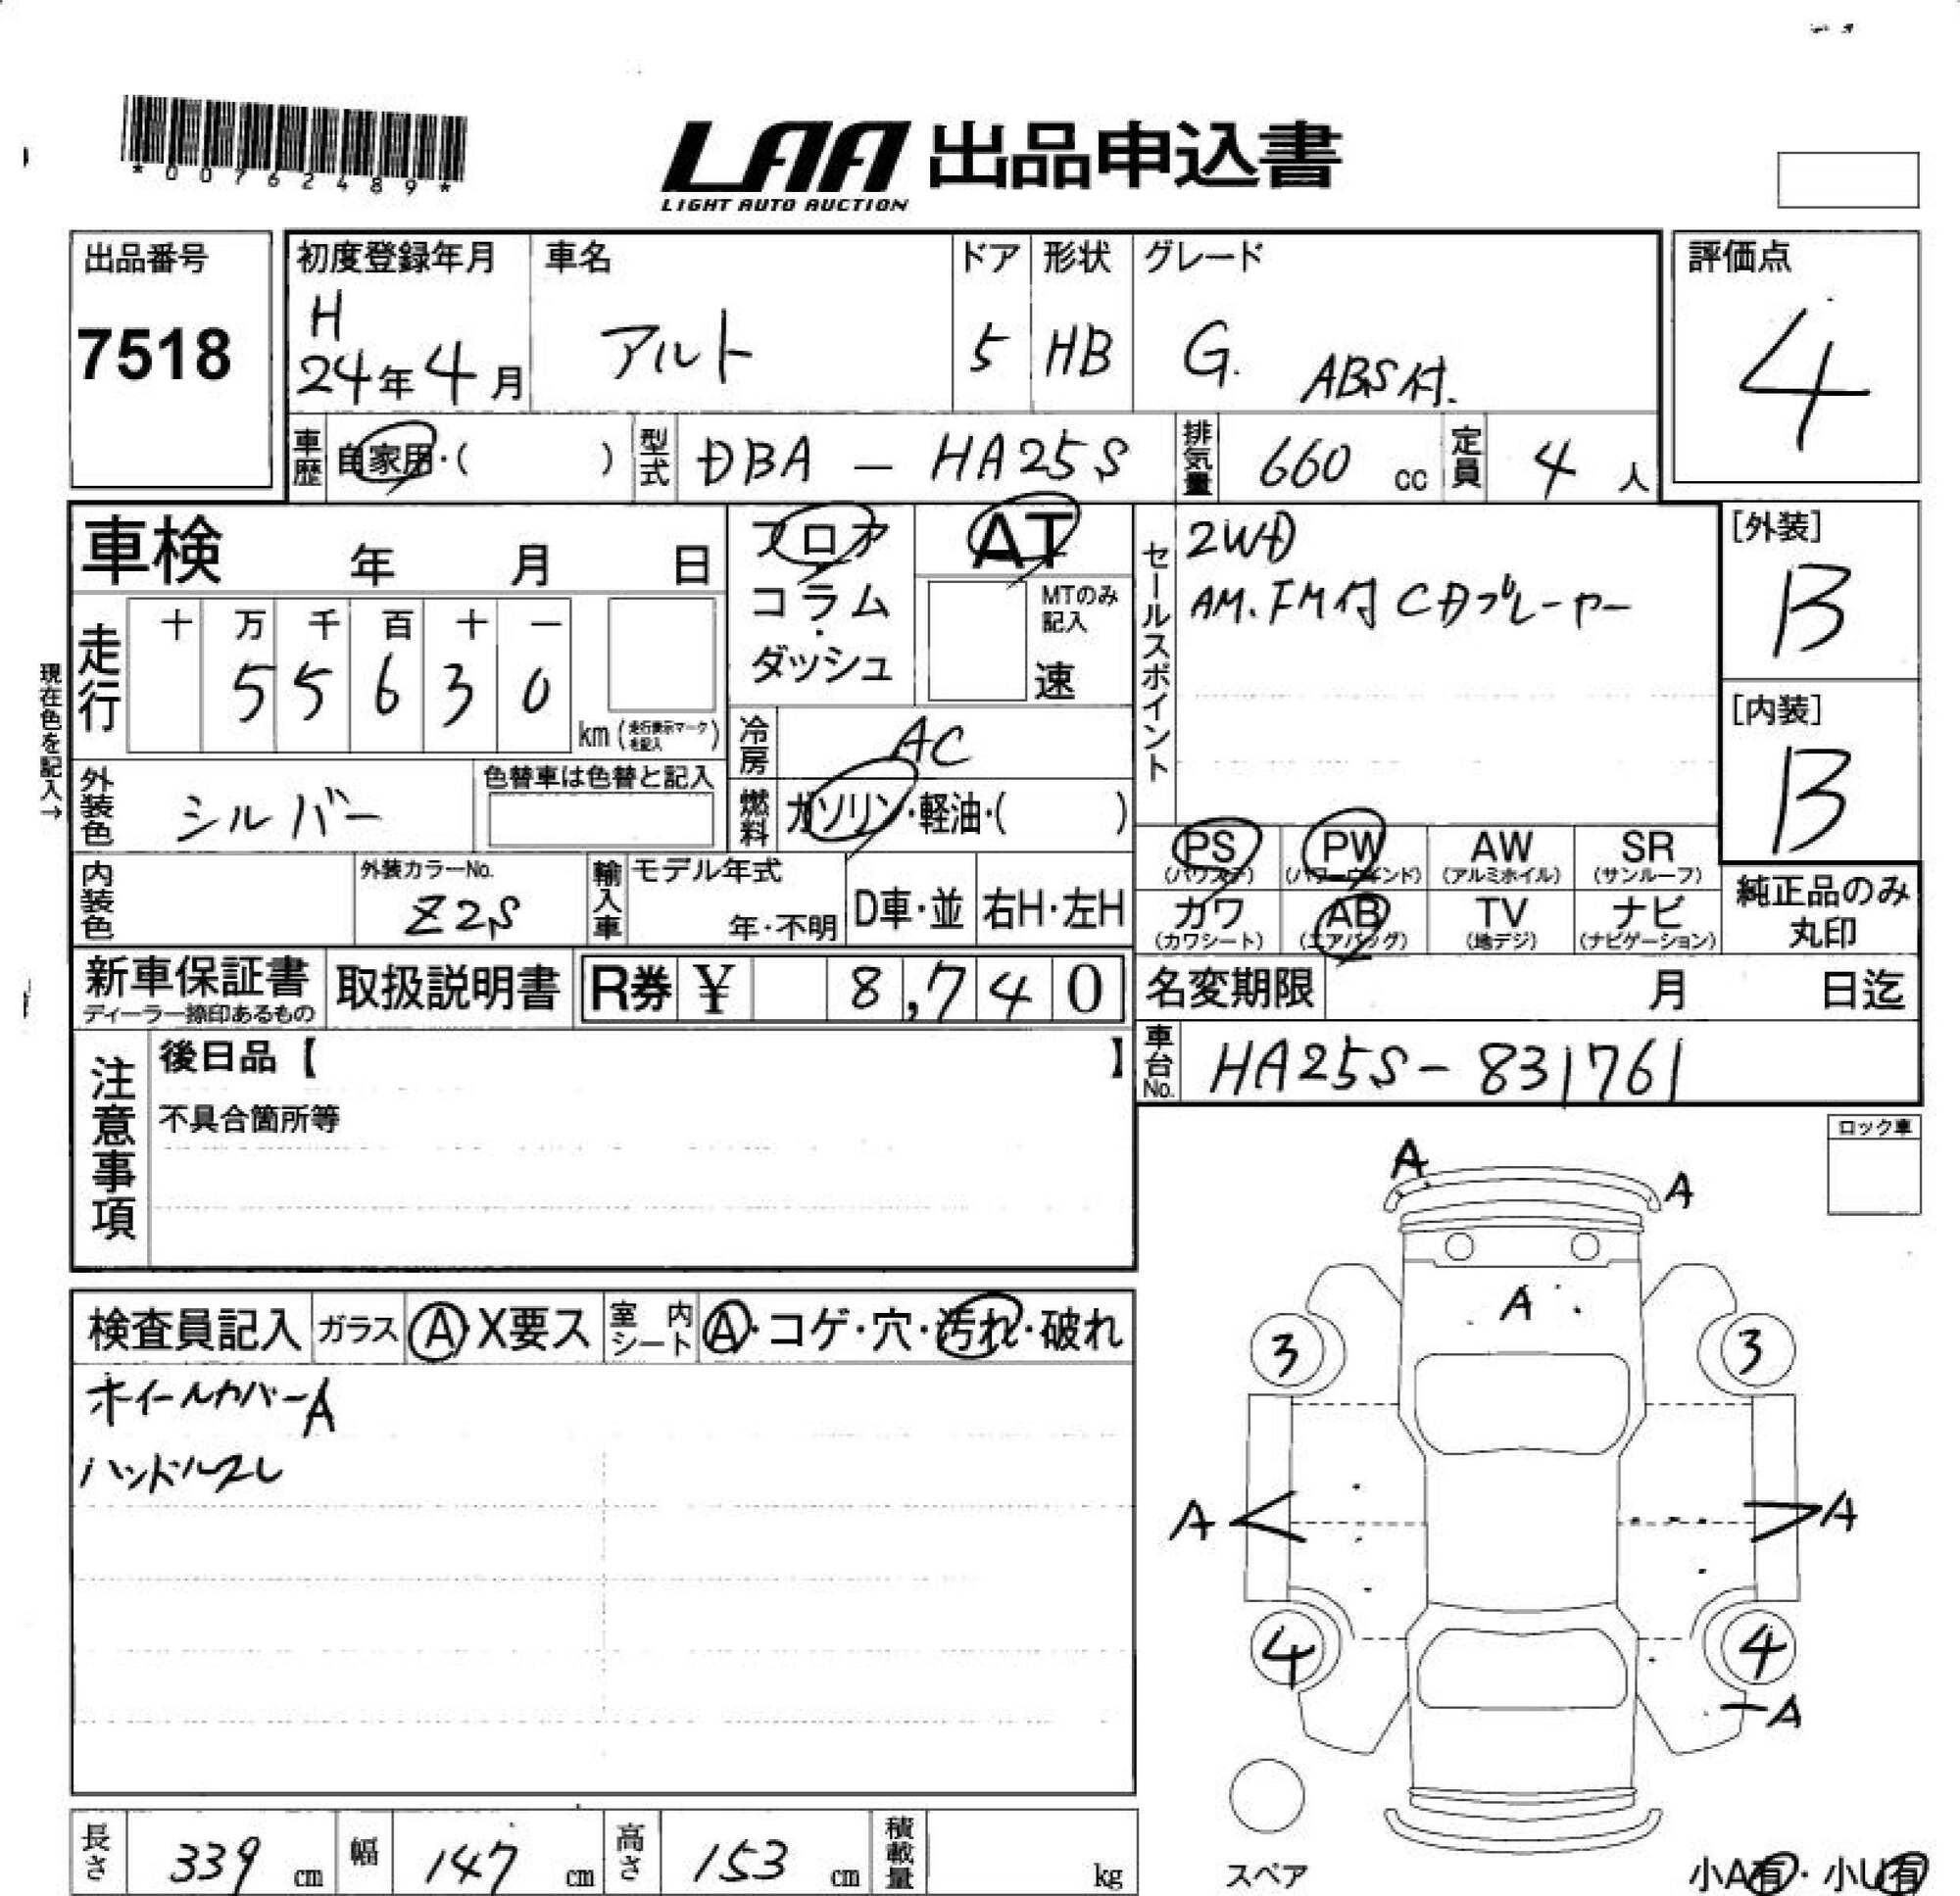 *00762489*
LAA 出品申込書
LIGHT AUTO AUCTION
出品番号
7518
初度登録年月
H
24年4月
車名
アルト
ドア
5
形状
HB
グレード
G. ABS付.
評価点
4
車歴 自家用・( )
型式 DBA - HA25S
排気量 660 cc
定員 4 人
車検 年 月 日
フロア
コラム
・
ダッシュ
AT
MTのみ
記入
速
セールスポイント
2WD
AM.FM付 CDプレーヤー
[外装]
B
[内装]
B
現在色を記入→
走行
十 万 千 百 十 一
5 5 6 3 0
km (走行表示マークを記入)
冷房 AC
燃料 ガソリン・軽油・( )
外装色 シルバー
色替車は色替と記入
内装色
外装カラーNo.
Z2S
輸入車
モデル年式
年・不明
D車・並
右H・左H
PS
(パワステ)
PW
(パワーウインド)
AW
(アルミホイル)
SR
(サンルーフ)
カワ
(カワシート)
AB
(エアバッグ)
TV
(地デジ)
ナビ
(ナビゲーション)
純正品のみ
丸印
新車保証書
ディーラー捺印あるもの
取扱説明書
R券 ¥ 8,740
名変期限 月 日迄
車台No. HA25S-831761
注意事項
後日品【 】
不具合箇所等
ロック車
検査員記入
ガラス A・X要ス
室内シート A・コゲ・穴・汚れ・破れ
ホイールカバーA
ハンドルスレ
A
A
A
3
3
A
A
4
4
A
スペア
小A有・小U有
長さ 339 cm
幅 147 cm
高さ 153 cm
積載量 kg